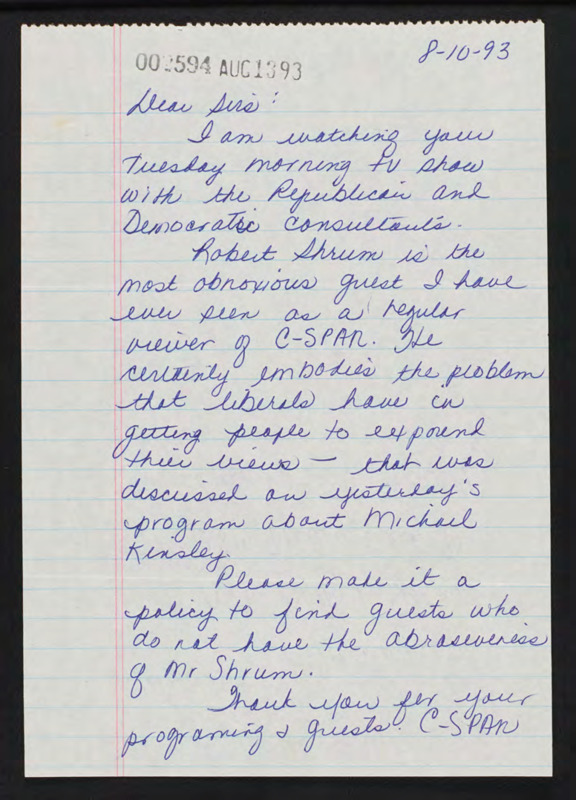 8-10-93
002594 AUG1393
Dear Sirs:
I am watching your
Tuesday morning tv show
with the Republican and
Democratic consultants.
Robert Shrum is the
most obnoxious guest I have
ever seen as a regular
viewer of C-SPAN. He
certainly embodies the problem
that liberals have in
getting people to expound
their views — that was
discussed on yesterday's
program about Michael
Kinsley.
Please make it a
policy to find guests who
do not have the abrasiveness
of Mr Shrum.
Thank you for your
programing & guests. C-SPAN